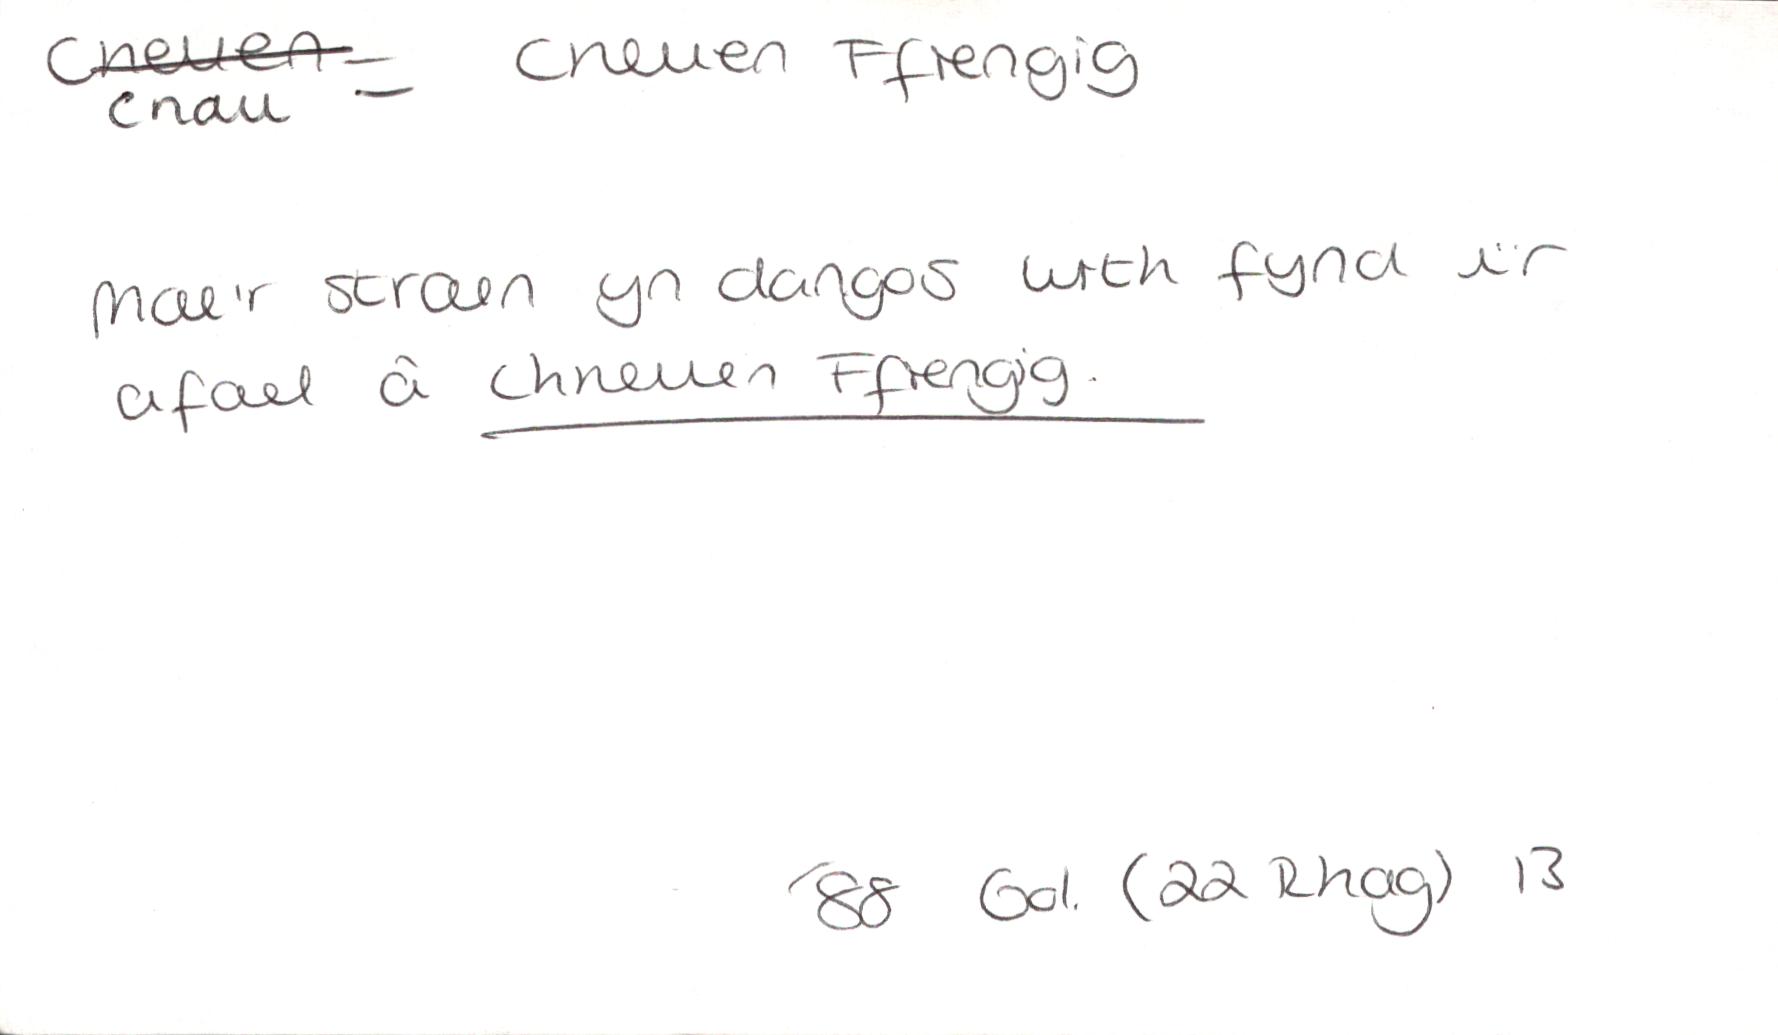 cneuen - cneuen Ffrengig
cnau -
Mae'r straen yn dangos wrth fynd i'r
afael â chneuen Ffrengig.
'88 Gol. (22 Rhag) 13